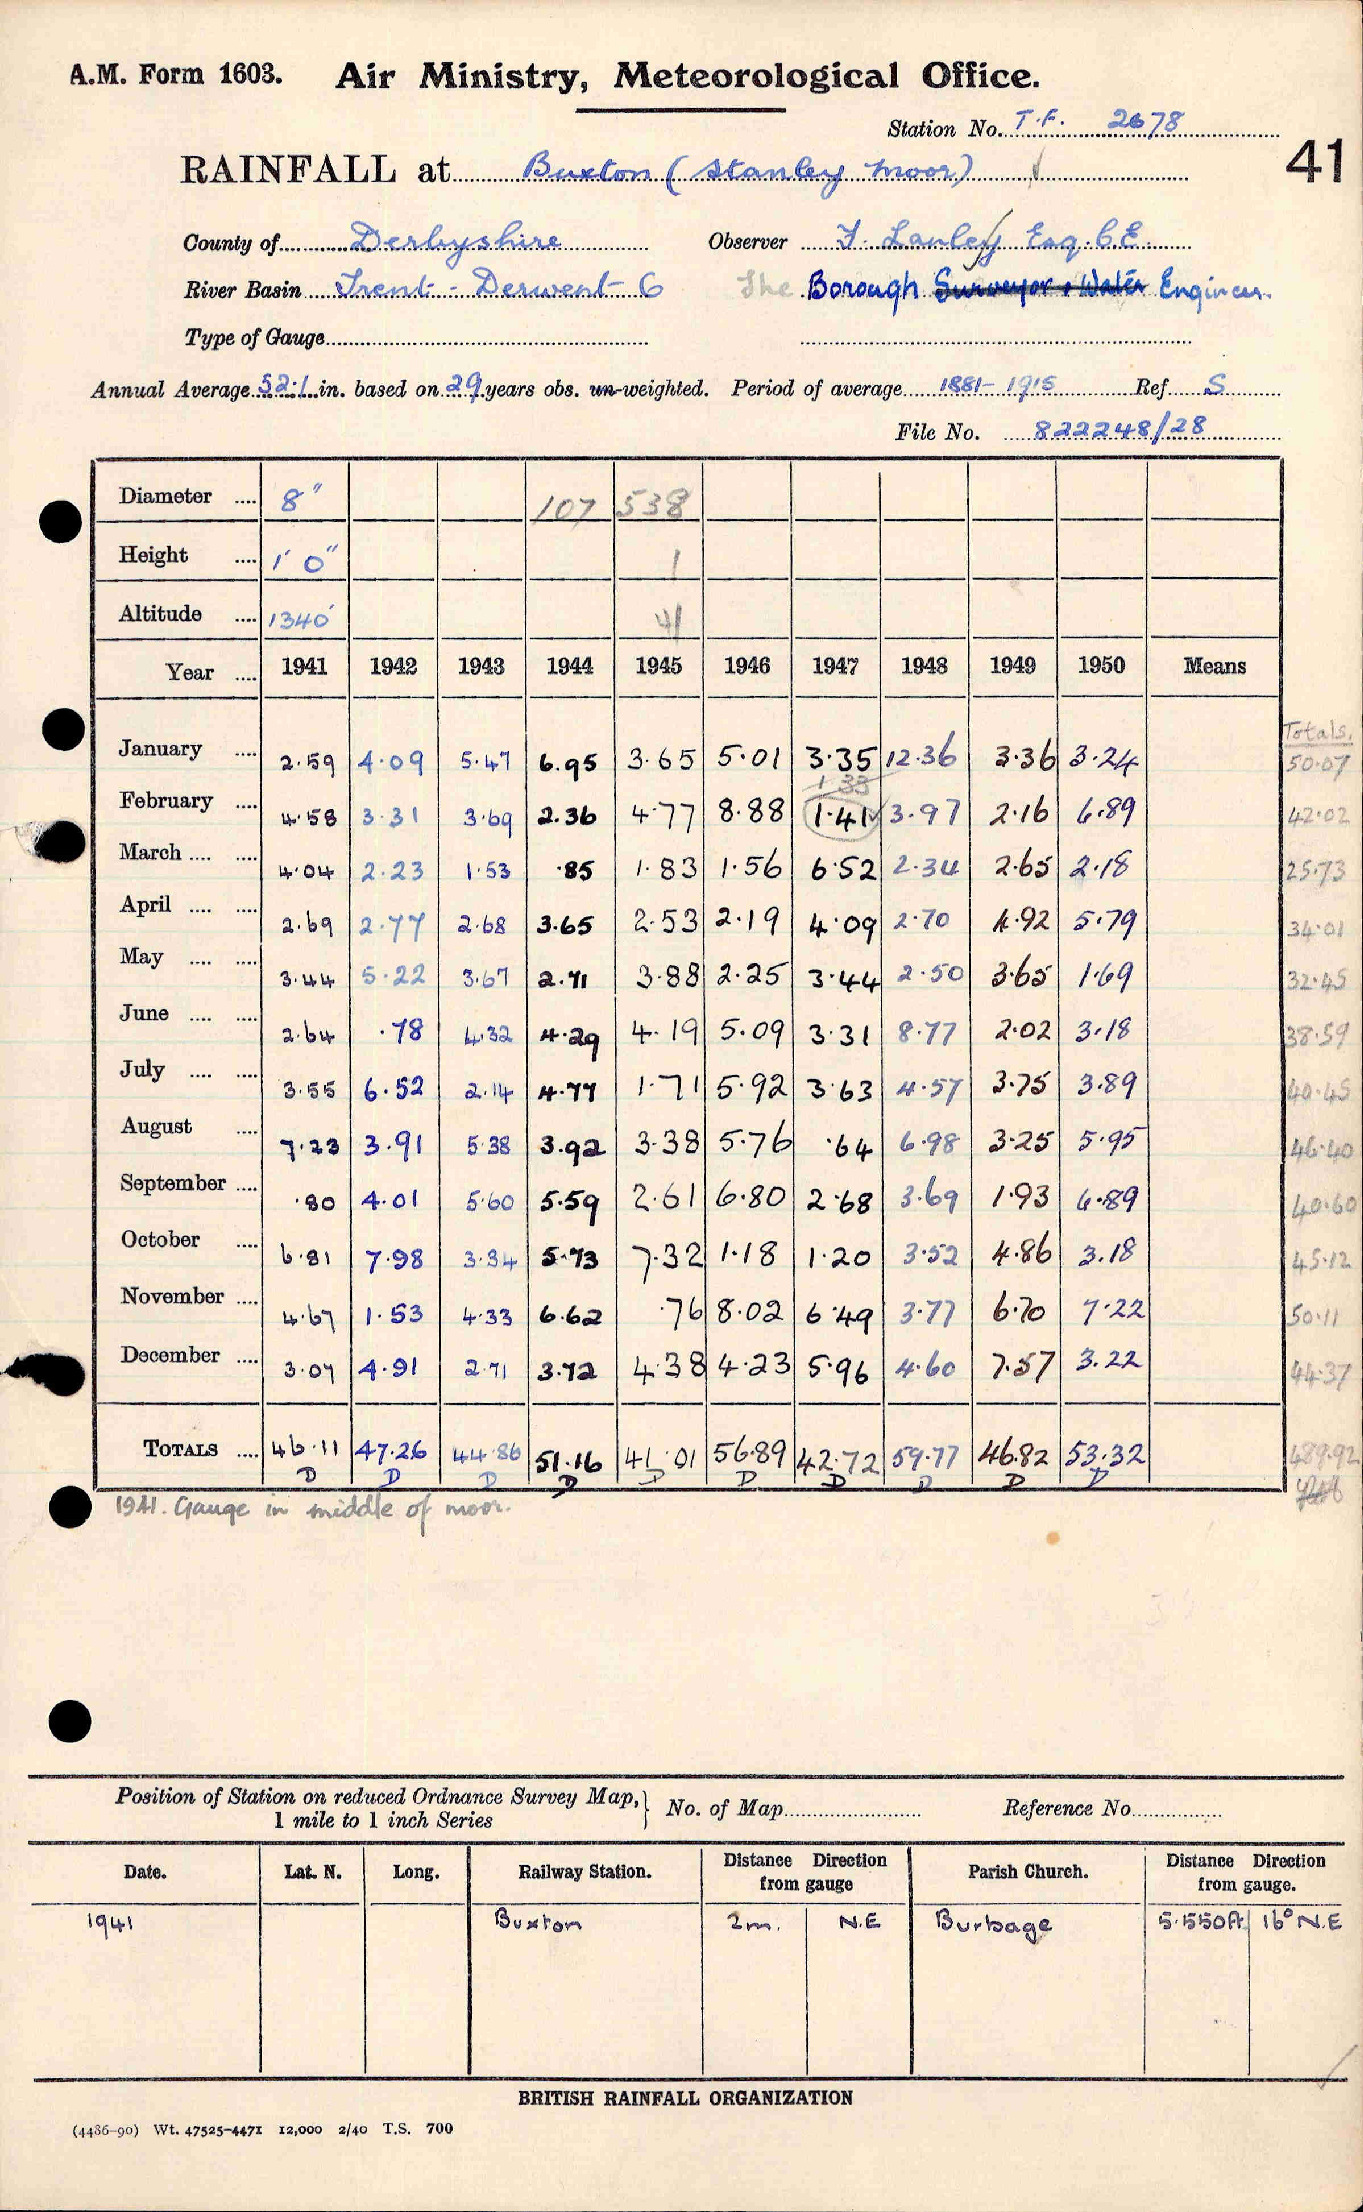 A.M. Form 1603. Air Ministry, Meteorological Office.
Station No. T.F. 2678
41
RAINFALL at Buxton (Stanley Moor)
County of Derbyshire Observer Esq. C.E.
River Basin Trent - Derwent - 6 The Borough Surveyor & Water Engineer.
Type of Gauge
Annual Average 52.1 in. based on 29 years obs. un-weighted. Period of average 1881-1915 Ref S
File No. 822248/28
Diameter .... 8" 107 538
Height .... 1' 0" 1
Altitude .... 1340' 41
Year .... 1941 1942 1943 1944 1945 1946 1947 1948 1949 1950 Means
Totals.
January .... 2.59 4.09 5.47 6.95 3.65 5.01 3.35 12.36 3.36 3.24 50.07
1.33
February .... 4.58 3.31 3.69 2.36 4.77 8.88 1.41 3.97 2.16 6.89 42.02
March .... .... 4.04 2.23 1.53 .85 1.83 1.56 6.52 2.34 2.65 2.18 25.73
April .... .... 2.69 2.77 2.68 3.65 2.53 2.19 4.09 2.70 4.92 5.79 34.01
May .... .... 3.44 5.22 3.67 2.71 3.88 2.25 3.44 2.50 3.65 1.69 32.45
June .... .... 2.64 .78 4.32 4.29 4.19 5.09 3.31 8.77 2.02 3.18 38.59
July .... .... 3.55 6.52 2.14 4.77 1.71 5.92 3.63 4.57 3.75 3.89 40.45
August .... 7.23 3.91 5.38 3.92 3.38 5.76 .64 6.98 3.25 5.95 46.40
September .... .80 4.01 5.60 5.59 2.61 6.80 2.68 3.69 1.93 6.89 40.60
October .... 6.81 7.98 3.34 5.73 7.32 1.18 1.20 3.52 4.86 3.18 45.12
November .... 4.67 1.53 4.33 6.62 .76 8.02 6.49 3.77 6.70 7.22 50.11
December .... 3.07 4.91 2.71 3.72 4.38 4.23 5.96 4.60 7.57 3.22 44.37
TOTALS .... 46.11 47.26 44.86 51.16 41.01 56.89 42.72 59.77 46.82 53.32 489.92
D D D D D D D D D D
1941. Gauge in middle of moor.
Position of Station on reduced Ordnance Survey Map, } No. of Map Reference No.
1 mile to 1 inch Series
Date. Lat. N. Long. Railway Station. Distance Direction from gauge Parish Church. Distance Direction from gauge.
1941 Buxton 2m. N.E Burbage 5.550ft 16° N.E
BRITISH RAINFALL ORGANIZATION
(4486-90) Wt. 47525-4471 12,000 2/40 T.S. 700